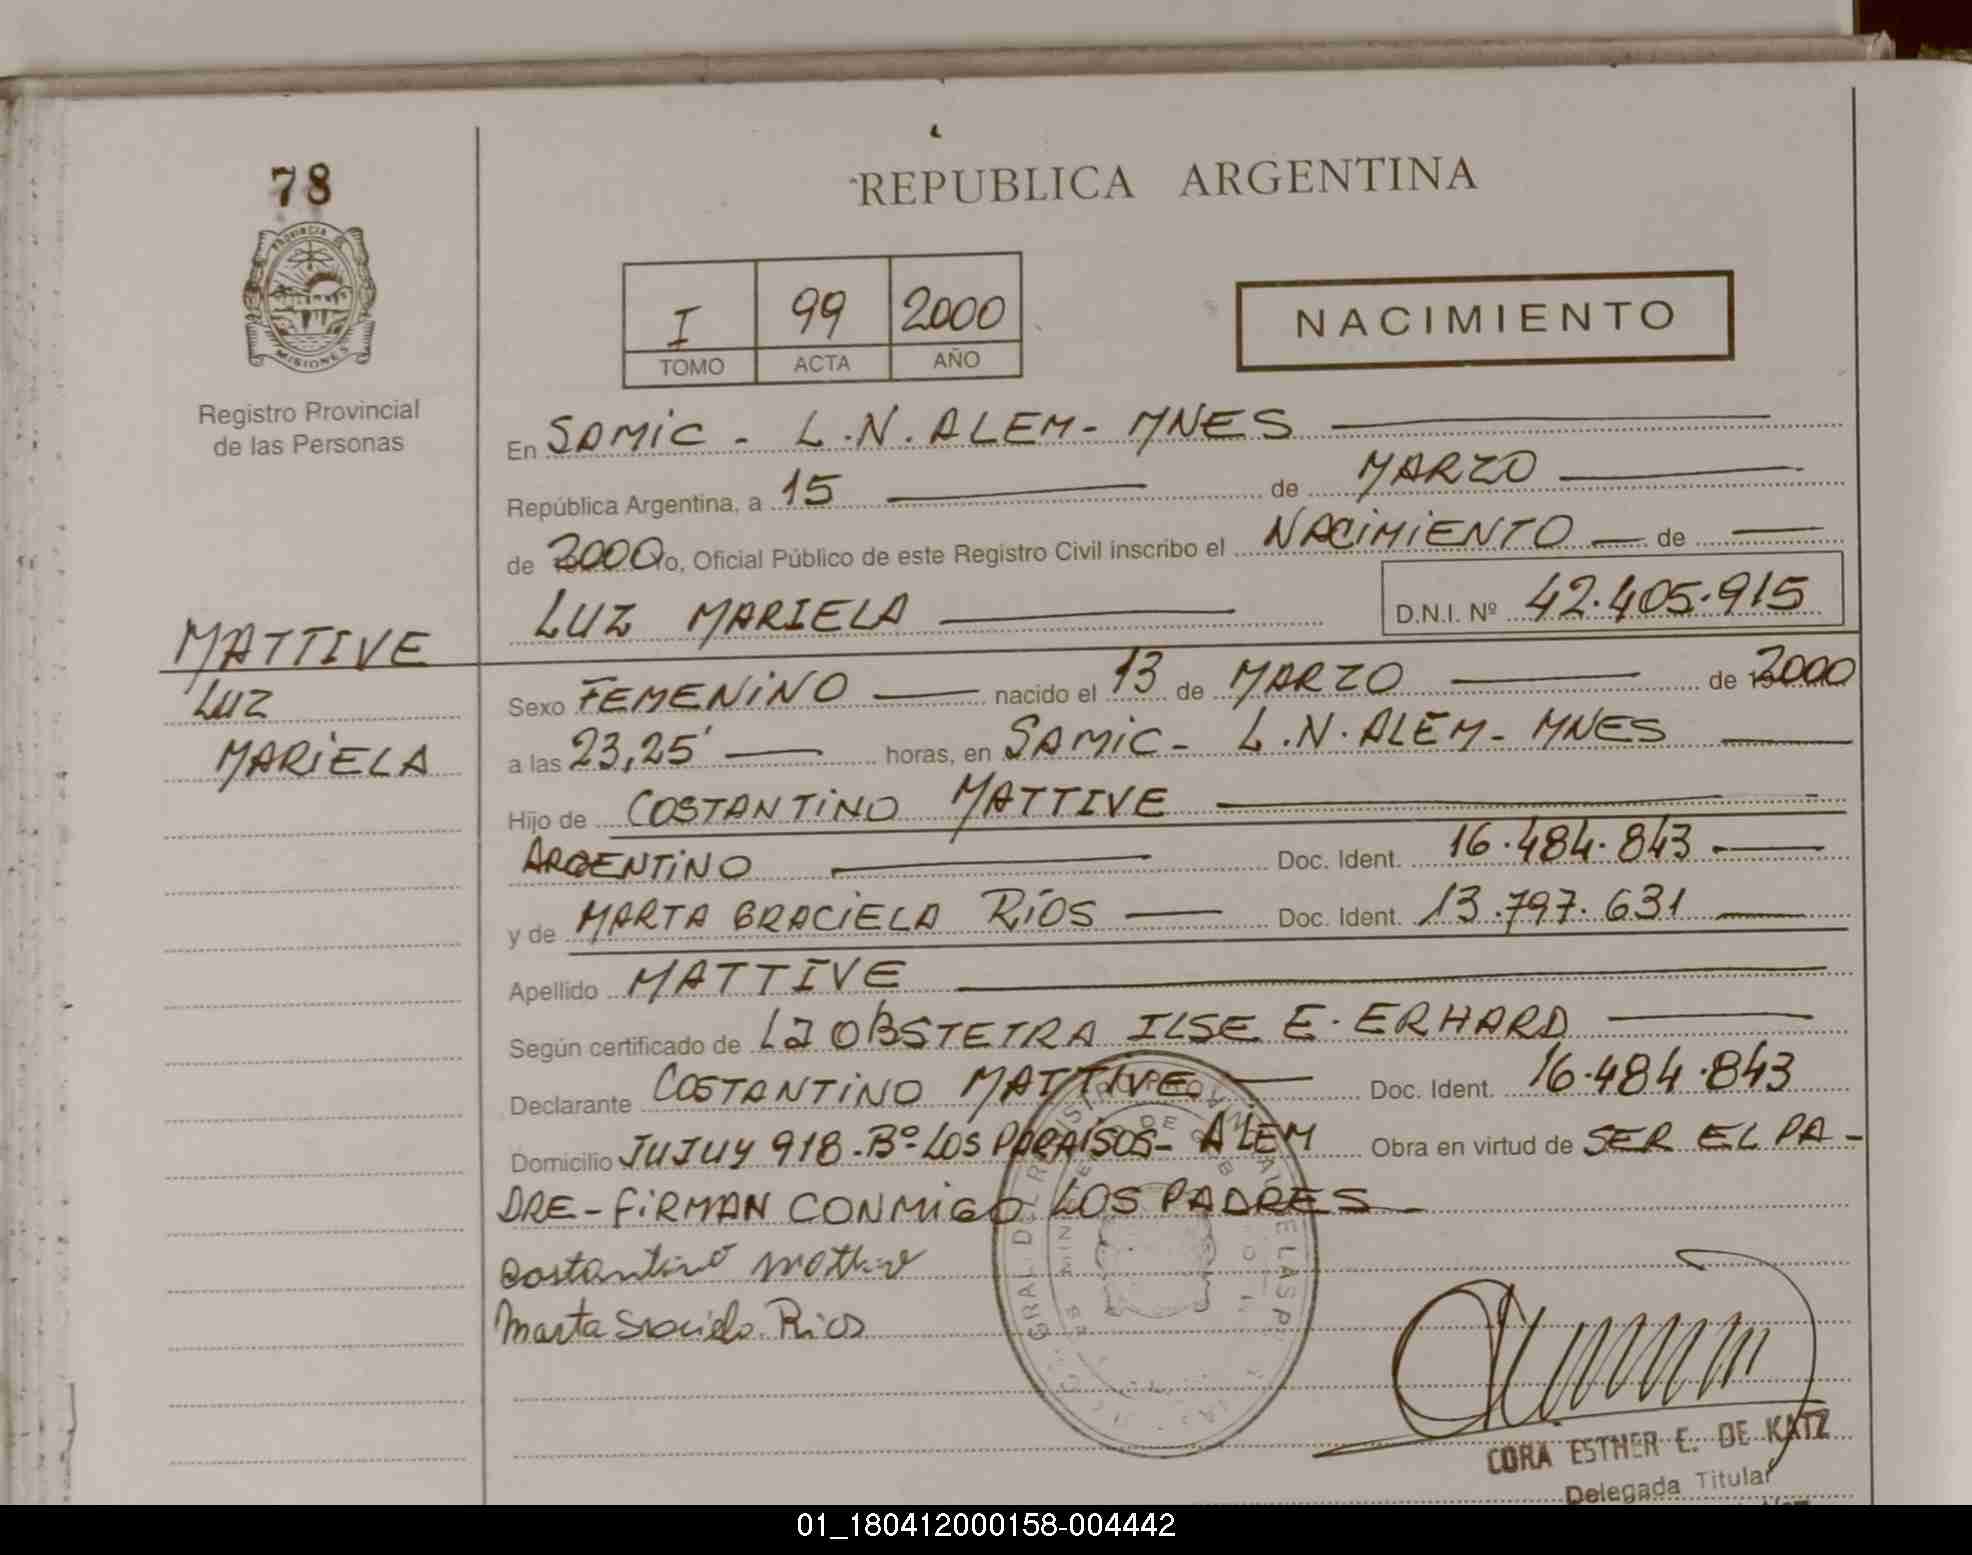 78
PROVINCIA DE
MISIONES
Registro Provincial
de las Personas
MATTIVE
LUZ
MARIELA
REPUBLICA ARGENTINA
I 99 2000
TOMO ACTA AÑO
NACIMIENTO
En SAMIC - L.N. ALEM - MNES
República Argentina, a 15 de MARZO
de 2000 Yo, Oficial Público de este Registro Civil inscribo el NACIMIENTO de
LUZ MARIELA D.N.I. Nº 42.405.915
Sexo FEMENINO nacido el 13 de MARZO de 2000
a las 23,25' horas, en SAMIC - L.N. ALEM - MNES
Hijo de COSTANTINO MATTIVE
ARGENTINO Doc. Ident. 16.484.843
y de MARTA GRACIELA RÍOS Doc. Ident. 13.797.631
Apellido MATTIVE
Según certificado de LA OBSTETRA ILSE E. ERHARD
Declarante COSTANTINO MATTIVE Doc. Ident. 16.484.843
Domicilio JUJUY 918 - Bº LOS PARAÍSOS - ALEM Obra en virtud de SER EL PA-
DRE - FIRMAN CONMIGO LOS PADRES
Costantino Mattive
Marta Graciela Rios
CORA ESTHER E. DE KATZ
Delegada Titular
01_180412000158-004442